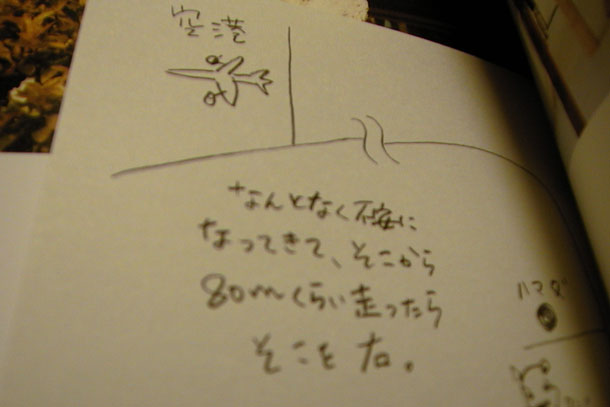 空港
なんとなく不安に
なってきて、そこから
80mくらい走ったら
そこを右。
ハマダ